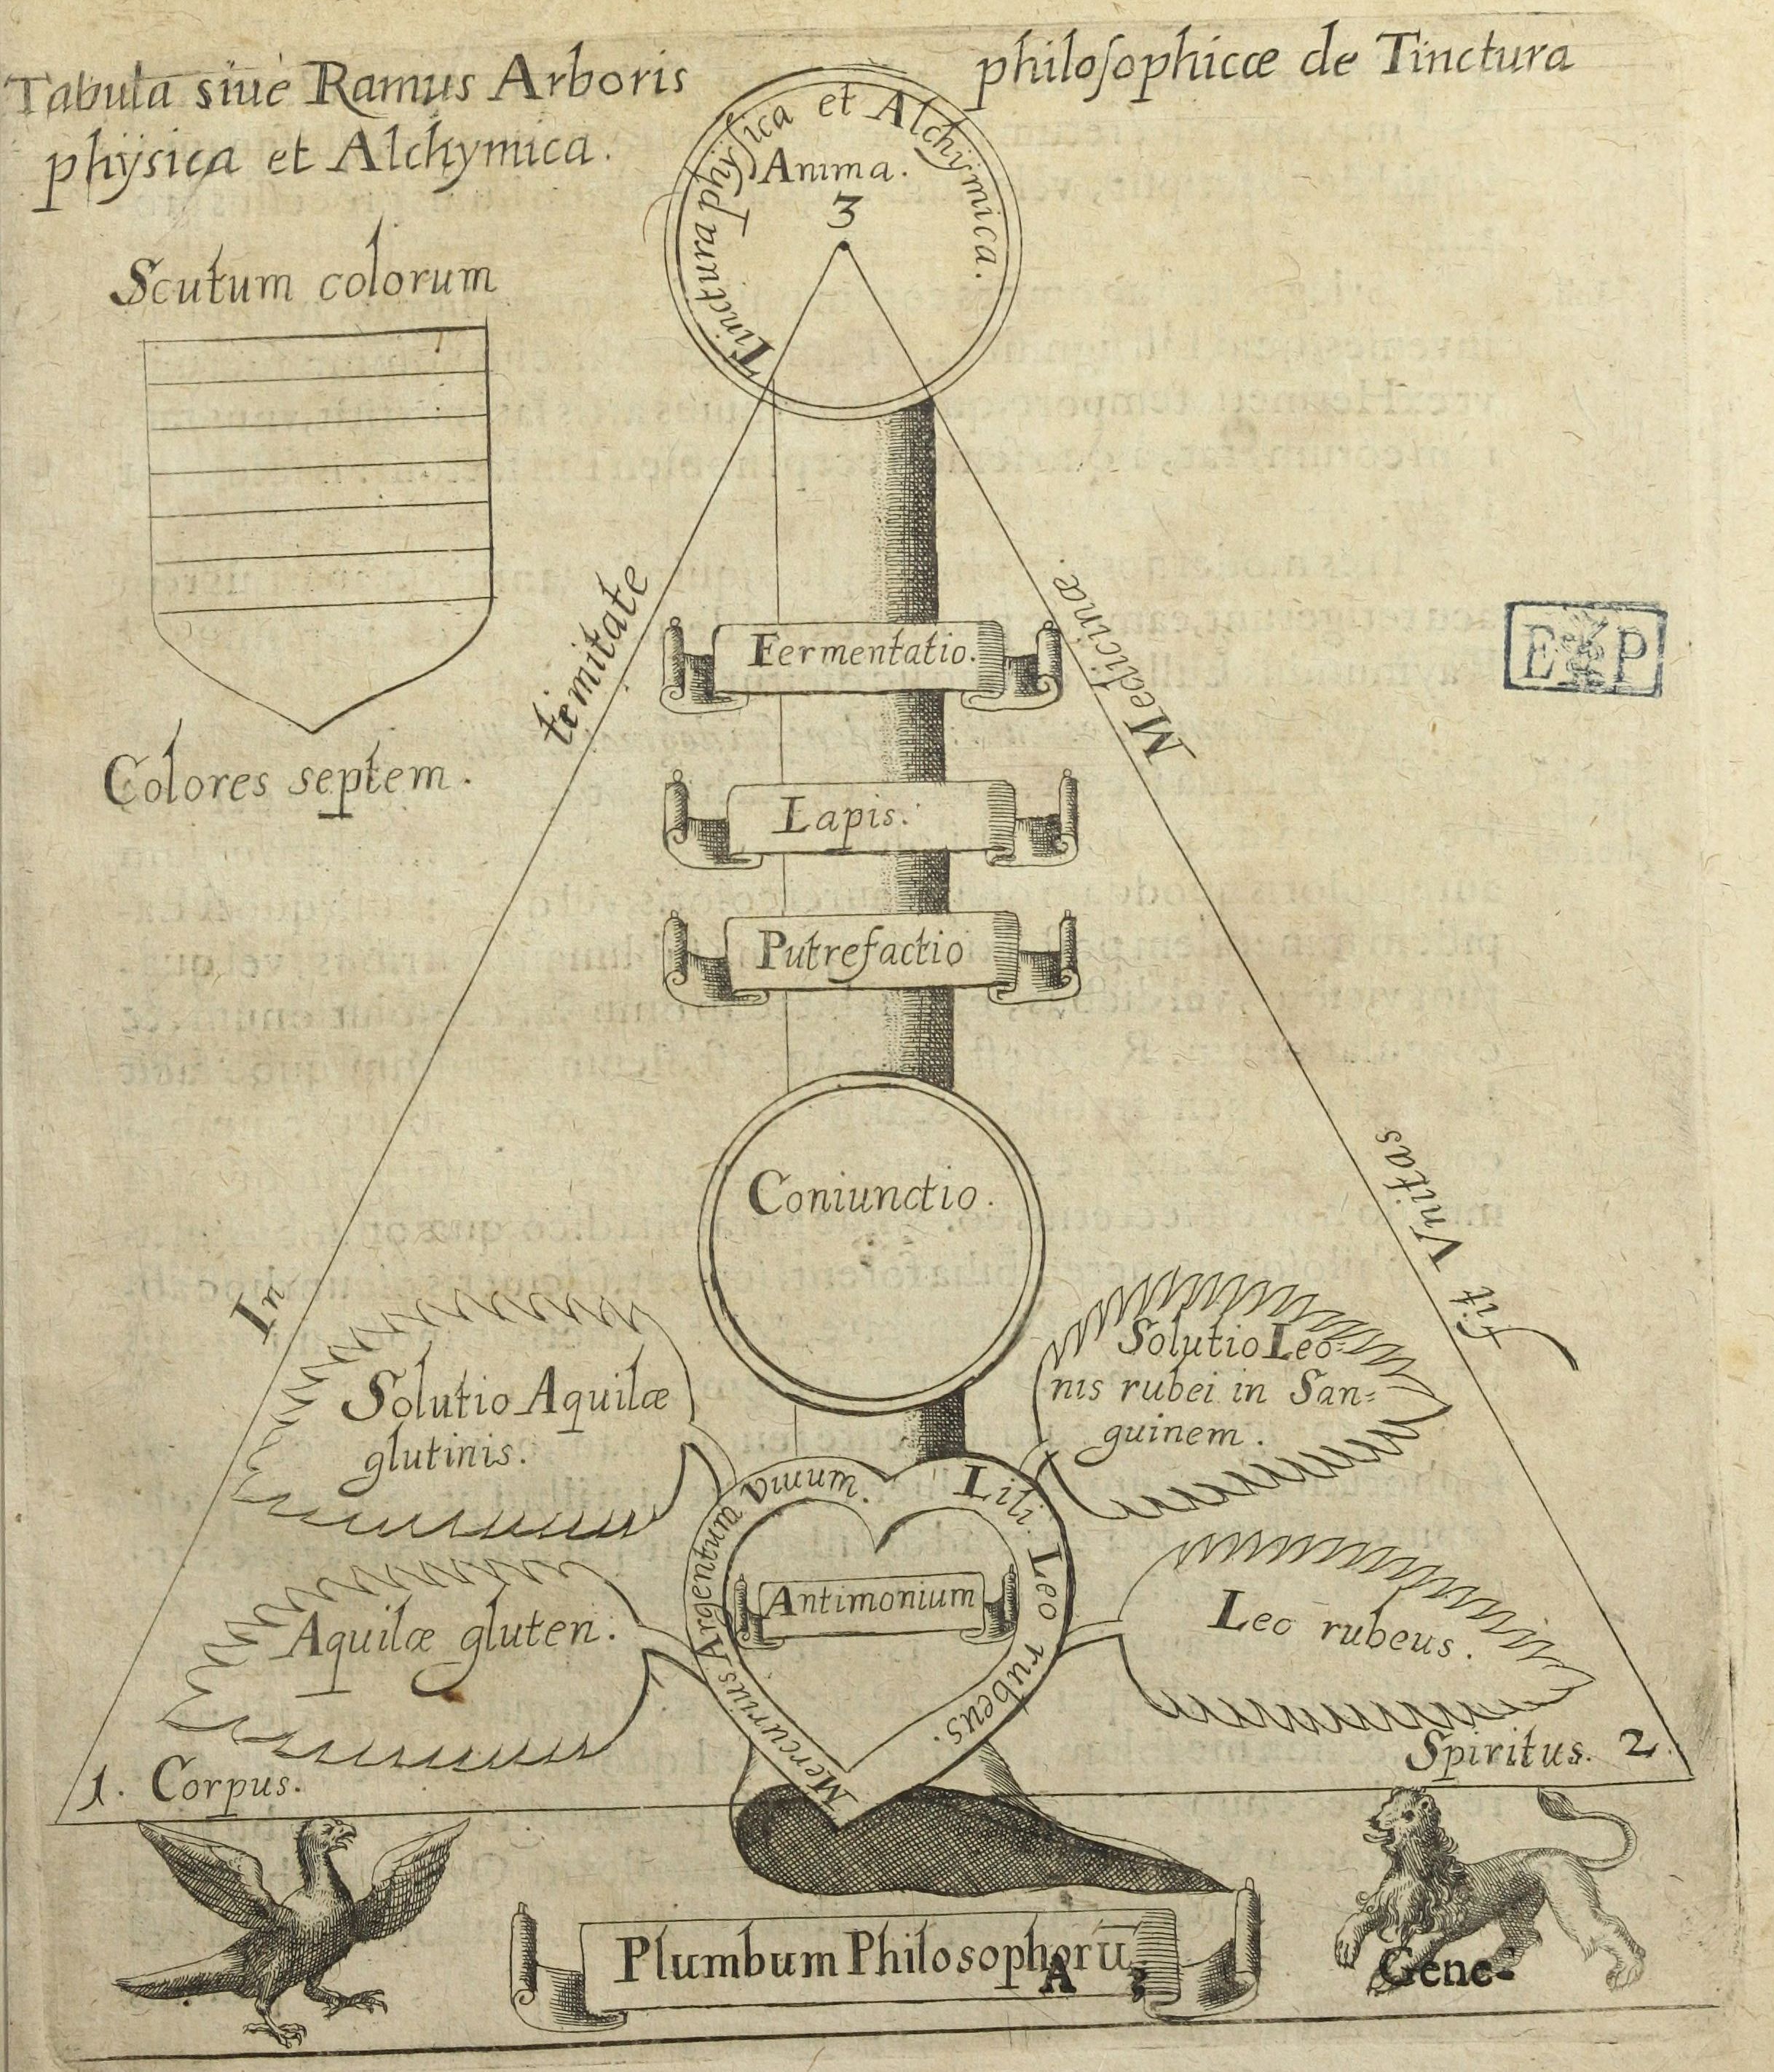 Tabula siue Ramus Arboris philosophicæ de Tinctura
physica et Alchymica.
Tinctura physica et Alchymica.
Anima.
3
Scutum colorum
Colores septem.
In trinitate
Medicinæ.
fit Vnitas
Fermentatio.
Lapis.
Putrefactio
Coniunctio.
Solutio Aquilæ
glutinis.
Solutio Leo=
nis rubei in San=
guinem.
Mercurius Argentum viuum.
Lili Leo rubeus.
Antimonium
Aquilæ gluten.
Leo rubeus.
1. Corpus.
Spiritus. 2.
Plumbum Philosophorū
A 3
Gene-
E P